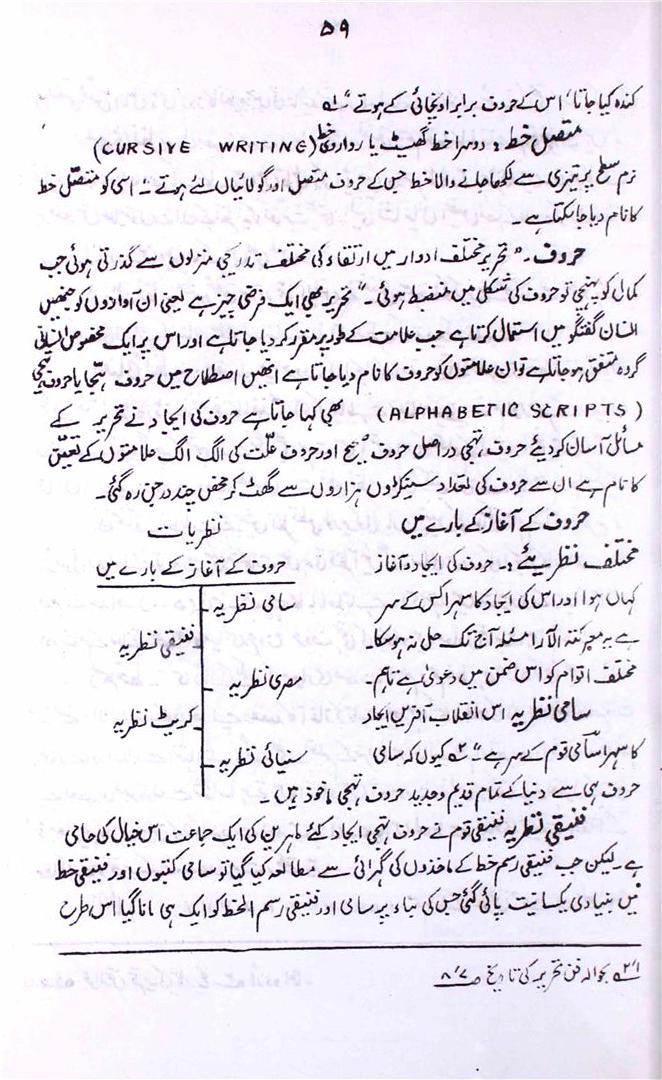 ۵۹
کندہ کیا جاتا، اس کے حروف برابر اونچائی کے ہوتے" لہ
متصل خط :۔ دوسرا خط گھسیٹ یا رواروی خط (CURSIVE WRITING)
نرم سطح پر تیزی سے لکھا جانے والا خط جس کے حروف متصل اور گولائیاں لئے ہوتے۔ اسی کو متصل خط
کا نام دیا جا سکتا ہے۔
حروف۔ "تحریر مختلف ادوار میں ارتقاء کی مختلف تدریجی منزلوں سے گذرتی ہوئی جب
کمال کو پہنچی تو حروف کی شکل میں منضبط ہوئی۔" تحریر بھی ایک فرضی چیز ہے یعنی ان آوازوں کو جنھیں
انسان گفتگو میں استعمال کرتا ہے جب علامت کے طور پر مقرر کر دیا جاتا ہے اور اس پر ایک مخصوص انسانی
گروہ متفق ہو جاتا ہے تو ان علامتوں کو حروف کا نام دیا جاتا ہے انھیں اصطلاح میں حروف ہجا یا حروف تہجی
(ALPHABETIC SCRIPTS) بھی کہا جاتا ہے حروف کی ایجاد نے تحریر کے
مسائل آسان کر دیئے حروف تہجی در اصل حروف صحیح اور حروف علّت کی الگ الگ علامتوں کے تعیّن
کا نام ہے ان سے حروف کی تعداد سینکڑوں ہزاروں سے گھٹ کر محض چند درجن رہ گئی۔
حروف کے آغاز کے بارے میں
مختلف نظریئے :۔ حروف کی ایجاد و آغاز
کہاں ہوا اور اس کی ایجاد کا سہرا کس کے سر
ہے یہ معرکتہ الآرا مسئلہ آج تک حل نہ ہو سکا۔
مختلف اقوام کو اس ضمن میں دعویٰ ہے تاہم۔
سامی نظریہ اس انقلاب آفریں ایجاد
کا سہرا سامی قوم کے سر ہے" ۲ہ کیوں کہ سامی
نظریات
حروف کے آغاز کے بارے میں
سامی نظریہ
فنیقی نظریہ
مصری نظریہ
کریٹ نظریہ
سنیائی نظریہ
حروف ہی سے دنیا کے تمام قدیم و جدید حروف تہجی ماخوذ ہیں۔
فنیقی نظریہ فنیقی قوم نے حروف تہجی ایجاد کیئے ماہرین کی ایک جماعت اس خیال کی حامی
ہے۔ لیکن جب فنیقی رسم خط کے ماخذوں کی گہرائی سے مطالعہ کیا گیا تو سامی کتبوں اور فنیقی خط
میں بنیادی یکسانیت پائی گئی جس کی بناء پر سامی اور فنیقی رسم الخط کو ایک ہی مانا گیا اس طرح
۱،۲ہ بحوالہ فن تحریر کی تاریخ ص ۸،۷